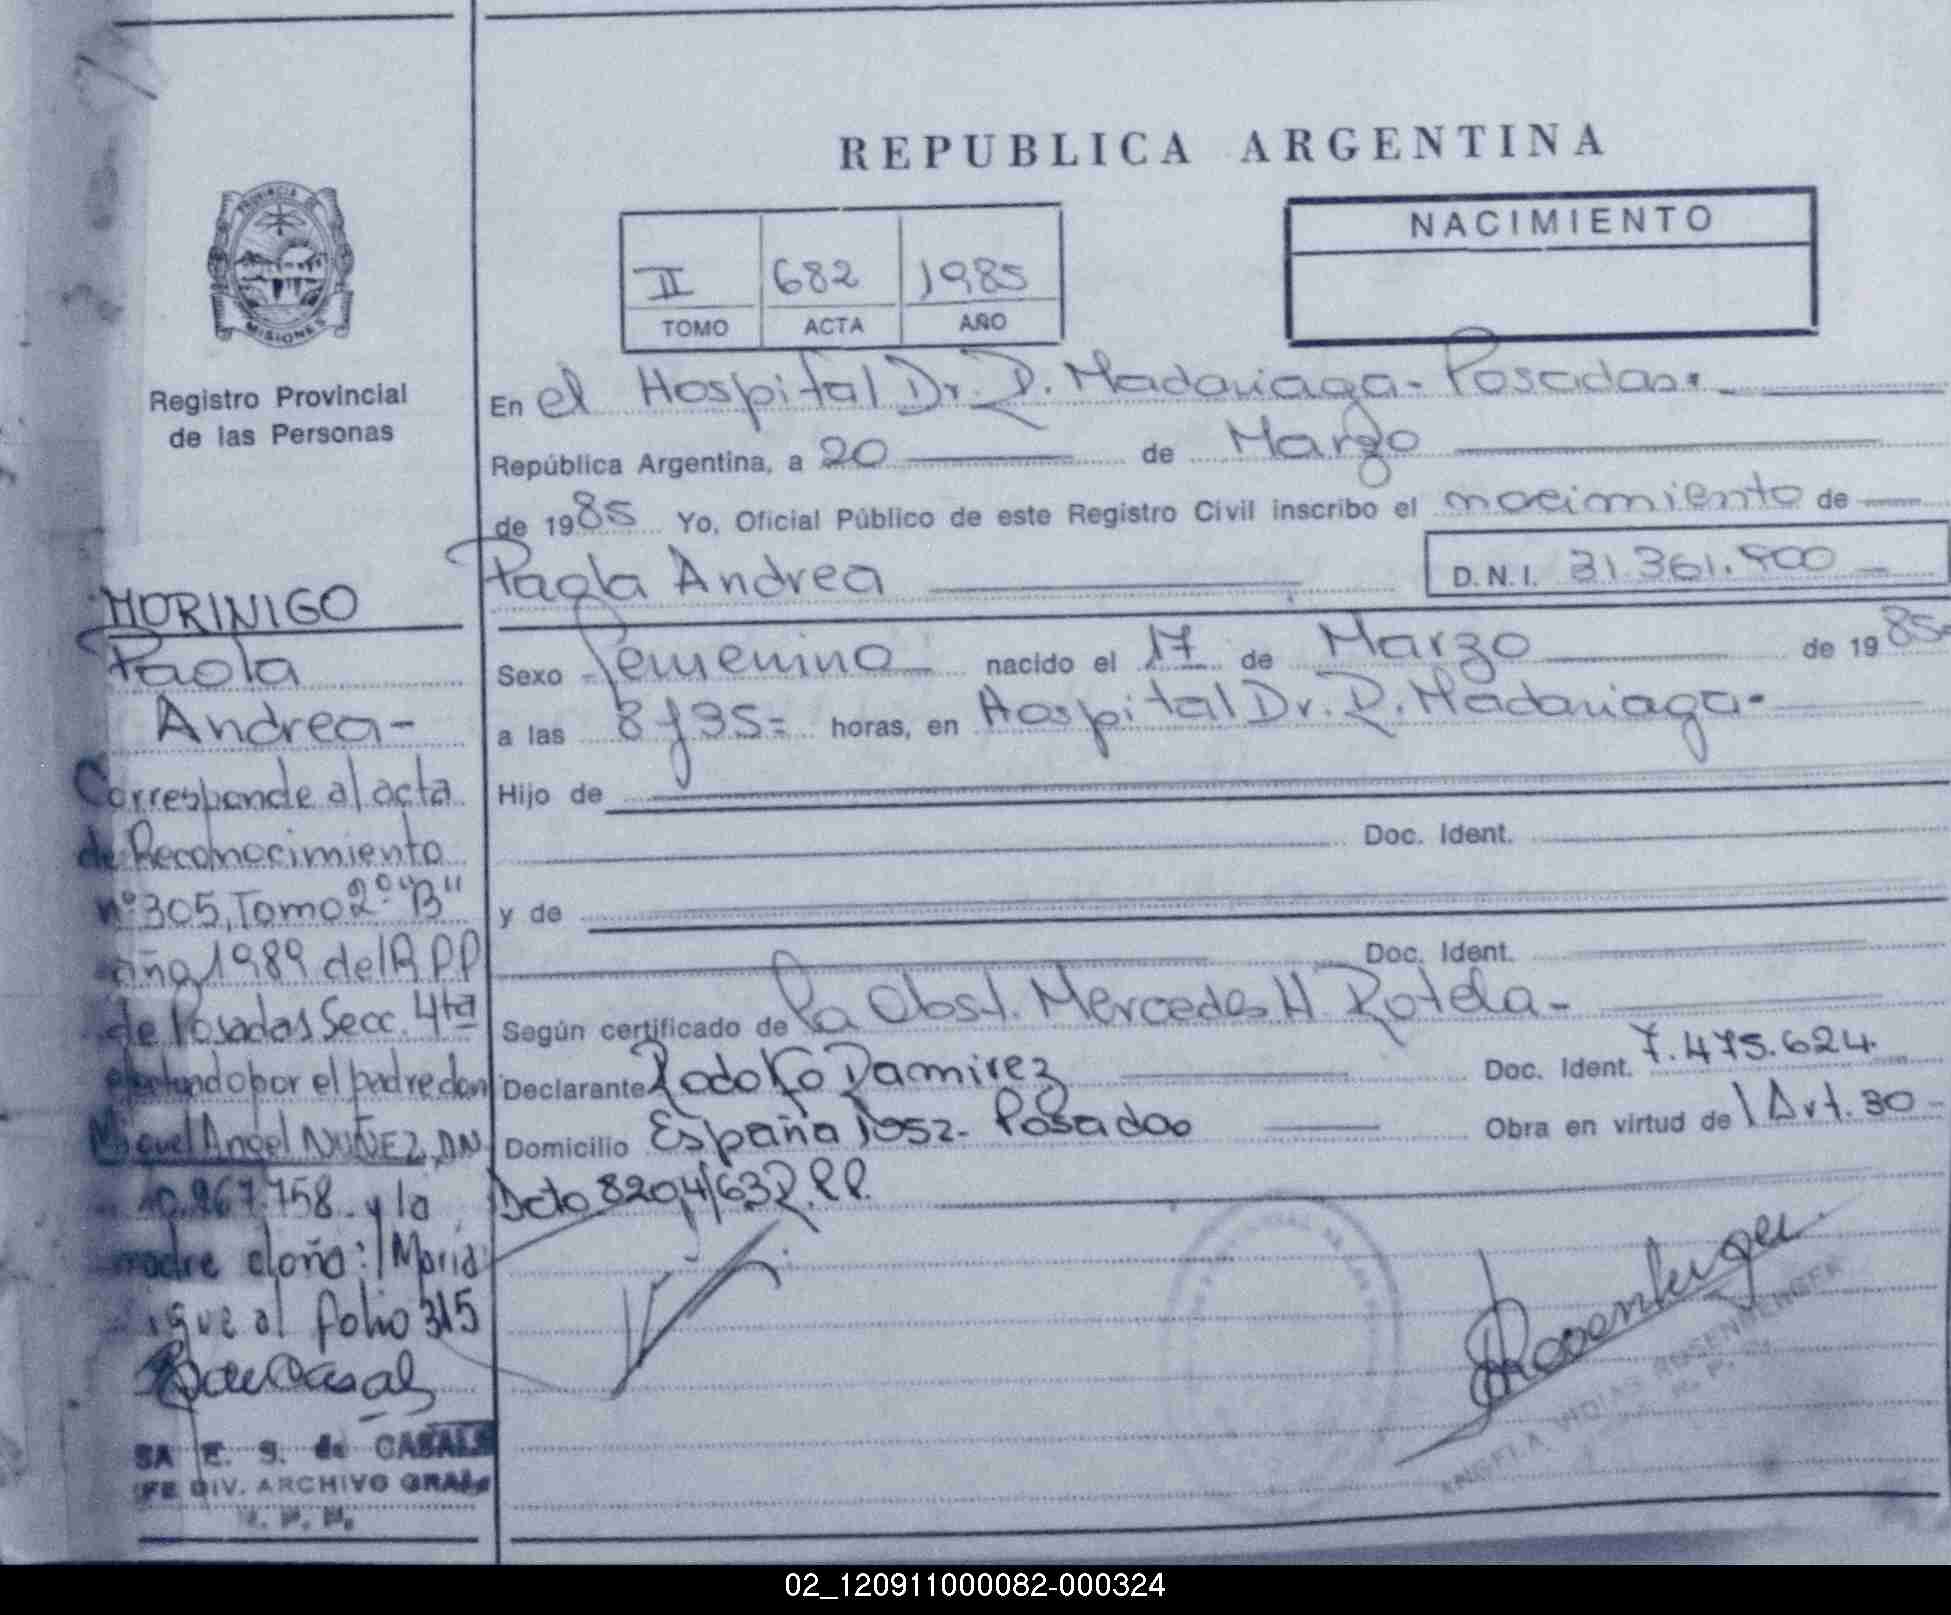 REPUBLICA ARGENTINA
PROVINCIA DE
MISIONES
Registro Provincial
de las Personas
II 682 1985
TOMO ACTA AÑO
NACIMIENTO
En el Hospital Dr. R. Madariaga - Posadas.-
República Argentina, a 20 de Marzo
de 1985 Yo, Oficial Público de este Registro Civil inscribo el nacimiento de
Paola Andrea
D.N.I. 31.361.900
Sexo Femenino nacido el 17 de Marzo de 1985-
a las 8 y 35= horas, en Hospital Dr. R. Madariaga-
Hijo de
Doc. Ident.
y de
Doc. Ident.
Según certificado de La Obst. Mercedes H. Rotela-
Declarante Rodolfo Ramirez Doc. Ident. 7.475.624.
Domicilio España 1052- Posadas Obra en virtud del Art. 30-
Dcto 8204/63 R.P.P.
MORINIGO
Paola
Andrea-
Corresponde al acta
de Reconocimiento
nº 305, Tomo 2º "B"
año 1989 del R.P.P
de Posadas Secc. 4ta
por el padre don
Miguel Angel NUÑEZ, DN
10.967.758 y la
madre doña: Maria
sigue al folio 315
SA E. S. de CASALS
FE DIV. ARCHIVO GRAL.
R. P. P.
Rosenberger
ANGELA ROSENBERGER
R. P. P.
02_120911000082-000324